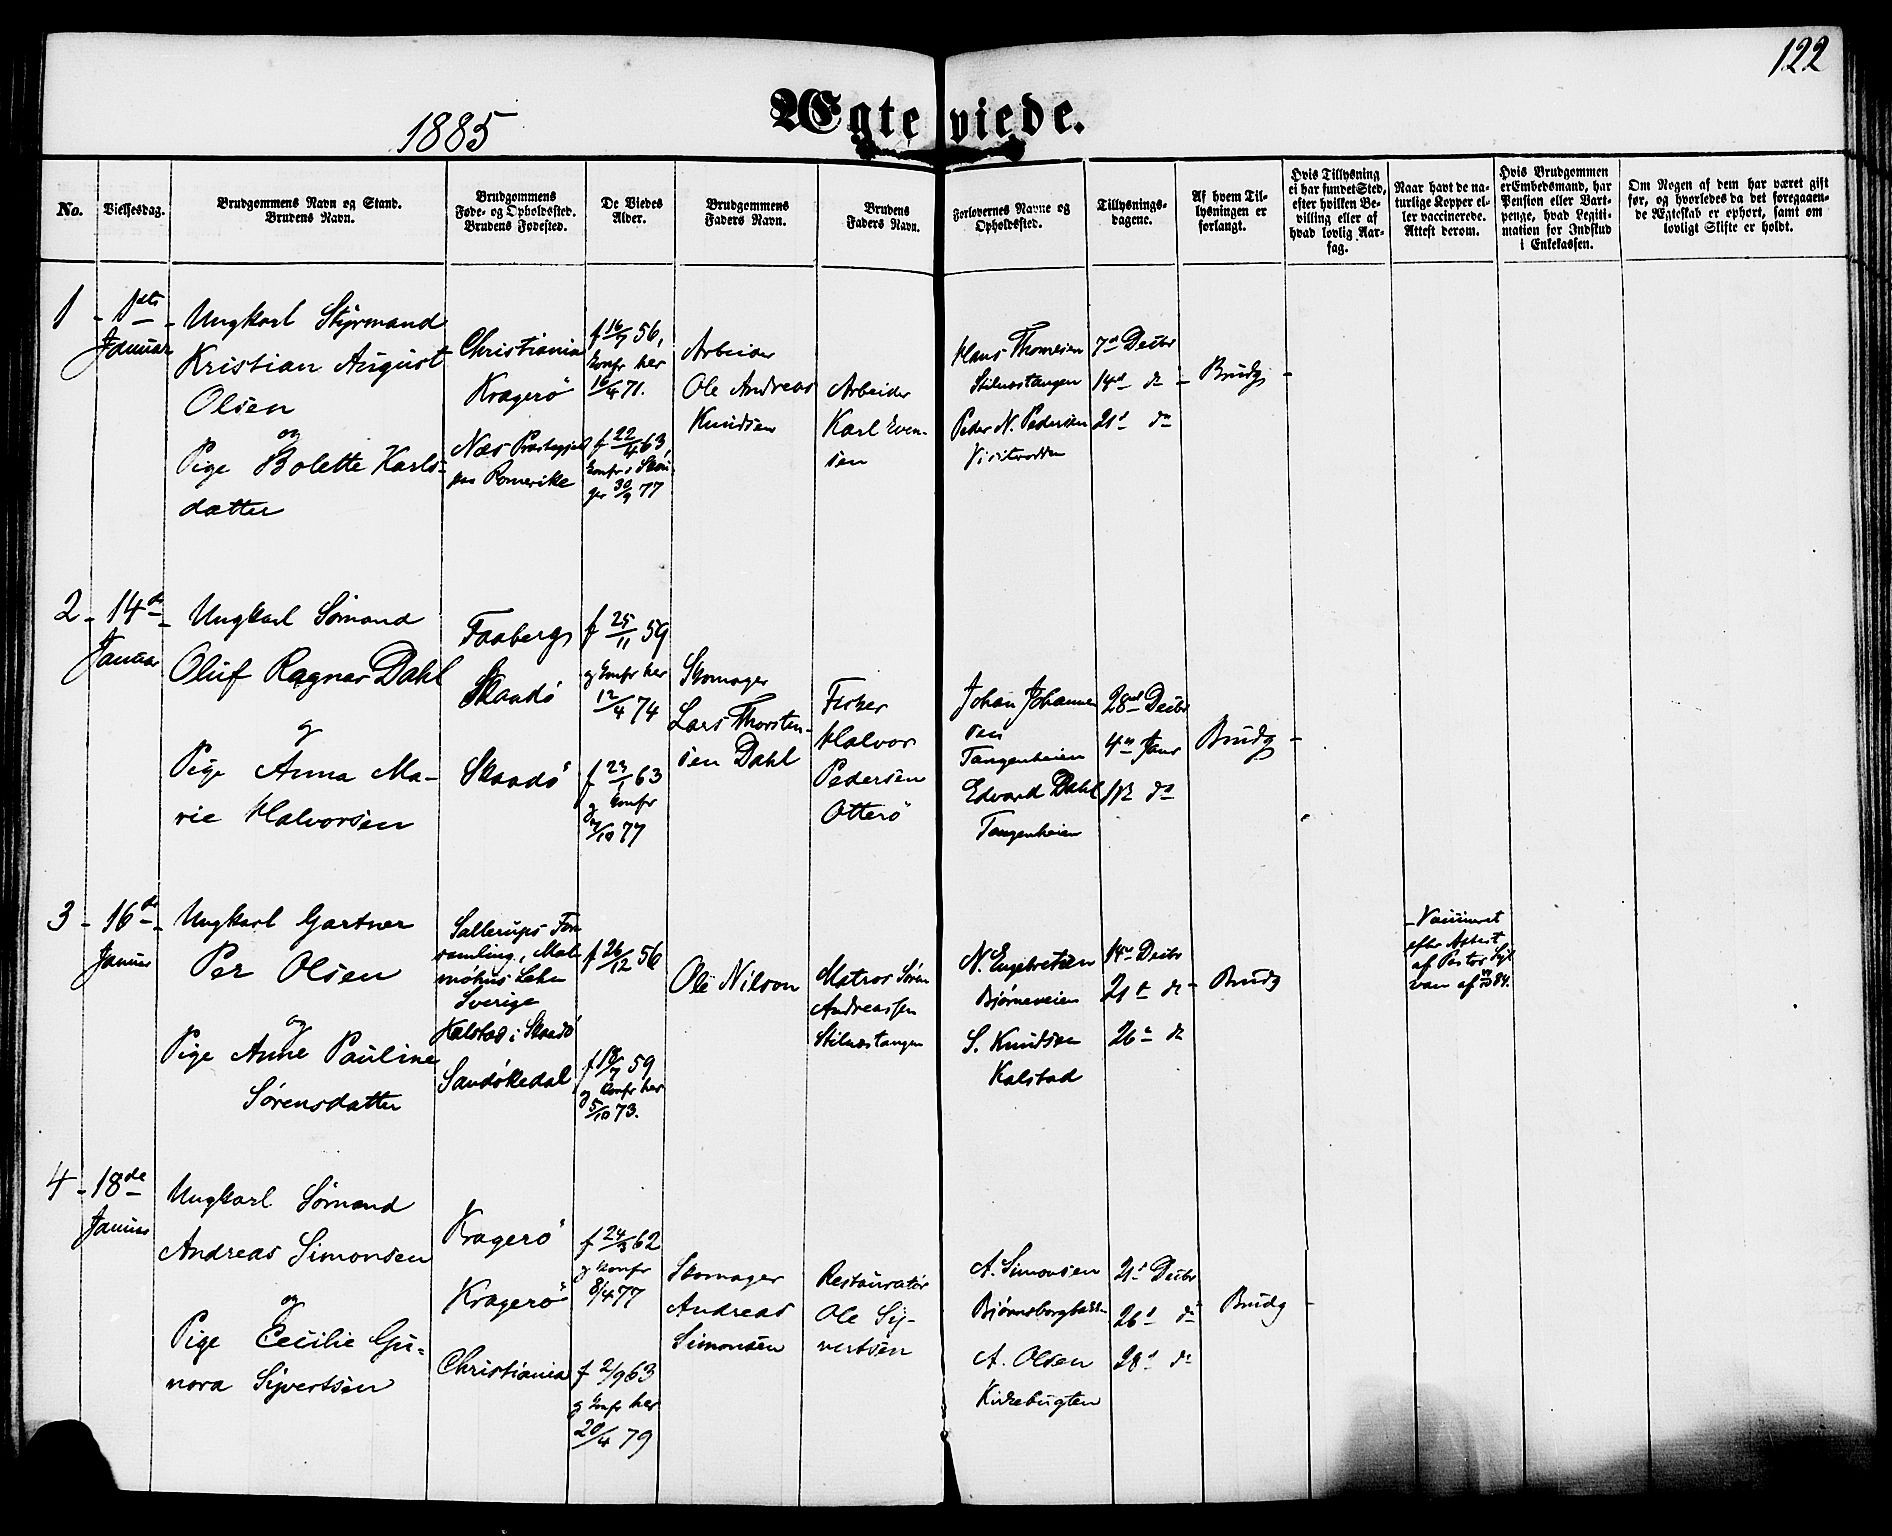 122
1885
Ægteviede.
No.
Vielsesdag.
Brudgommens Navn og Stand.
Brudens Navn.
Brudgommens
Føde- og Opholdssted.
Brudens Fødested.
De Viedes
Alder.
Brudgommens
Faders Navn.
Brudens
Faders Navn.
Forlovernes Navne og
Opholdssted.
Tillysnings-
dagene.
Af hvem Til-
lysningen er
forlangt.
Hvis Tillysning
ei har fundet Sted,
efter hvilken Be-
villing eller af
hvad lovlig Aar-
sag.
Naar havt de na-
turlige Kopper el-
ler vaccinerede.
Attest derom.
Hvis Brudgommen
er Embedsmand, har
Pension eller Vart-
penge, hvad Legiti-
mation for Indskud
i Enkekassen.
Om Nogen af dem har været gift
før, og hvorledes da det foregaaen-
de Ægteskab er ophørt, samt om
lovligt Skifte er holdt.
1 -
1ste
Januar
Ungkarl Styrmand
Kristian August
Olsen
og
Pige Bolette Karls-
datter
Christiania
Kragerö
Næs Præstegjeld
paa Romerike
f 16/7 56,
konfr her
16/4 71.
f 22/4 63,
konfr i Skou-
ger 30/9 77
Arbeider
Ole Andreas
Knudsen
Arbeider
Karl Even-
sen
Hans Thomesen
Stilnæstangen
Peder N. Pedersen
7de Decbr
14de do -
21de do
Brudg -
2 -
14de
Januar
Ungkarl Sømand
Oluf Ragnar Dahl
og
Pige Anna Ma-
rie Halvorsen
Faaberg,
Skaadö
Skaadö
f 25/11 59
og konfr her
12/4 74
f 23/1 63
og konfr
7/10 77
Skomager
Lars Thorsten-
sen Dahl
Fisker
Halvor
Pedersen
Otterö
Johan Johannes-
sen
Tangenheien
Edvard Dahl
Tangenheien
28de Decbr
4de Janr
do
Brudg -
3 -
16de
Januar
Ungkarl Gartner
Per Olsen
og
Pige Anne Pauline
Sørensdatter
Sallerups For-
samling, Mal-
möhus Lehn
Sverige
Kalstad i Skaadö
Sandökedal
f 26/12 56
f 18/7 59
og konfr her
5/10 73.
Ole Nilson
Matros Søren
Andreassen
Stilnæstangen
N. Engebretsen
Bjørneveien
S. Knudsen
Kalstad
14de Decbr
21de do -
26de do
Brudg
- Vaccineret
efter Attest
af Pastor Syl
van af 84.
4 -
18de
Januar
Ungkarl Sømand
Andreas Simonsen
og
Pige Cecilie Gu-
nora Syvertsen
Kragerö
Kragerö
Christiania
f 24/3 62
og konfr
8/4 77
f 2/9 63
og konfr her
20/4 79
Skomager
Andreas
Simonsen
Restauratør
Ole Sy-
vertsen
A. Simonsen
Bjørnsborgbakken
A. Olsen
Kirkebugten
21de Decbr
26de do
28de do
Brudg -